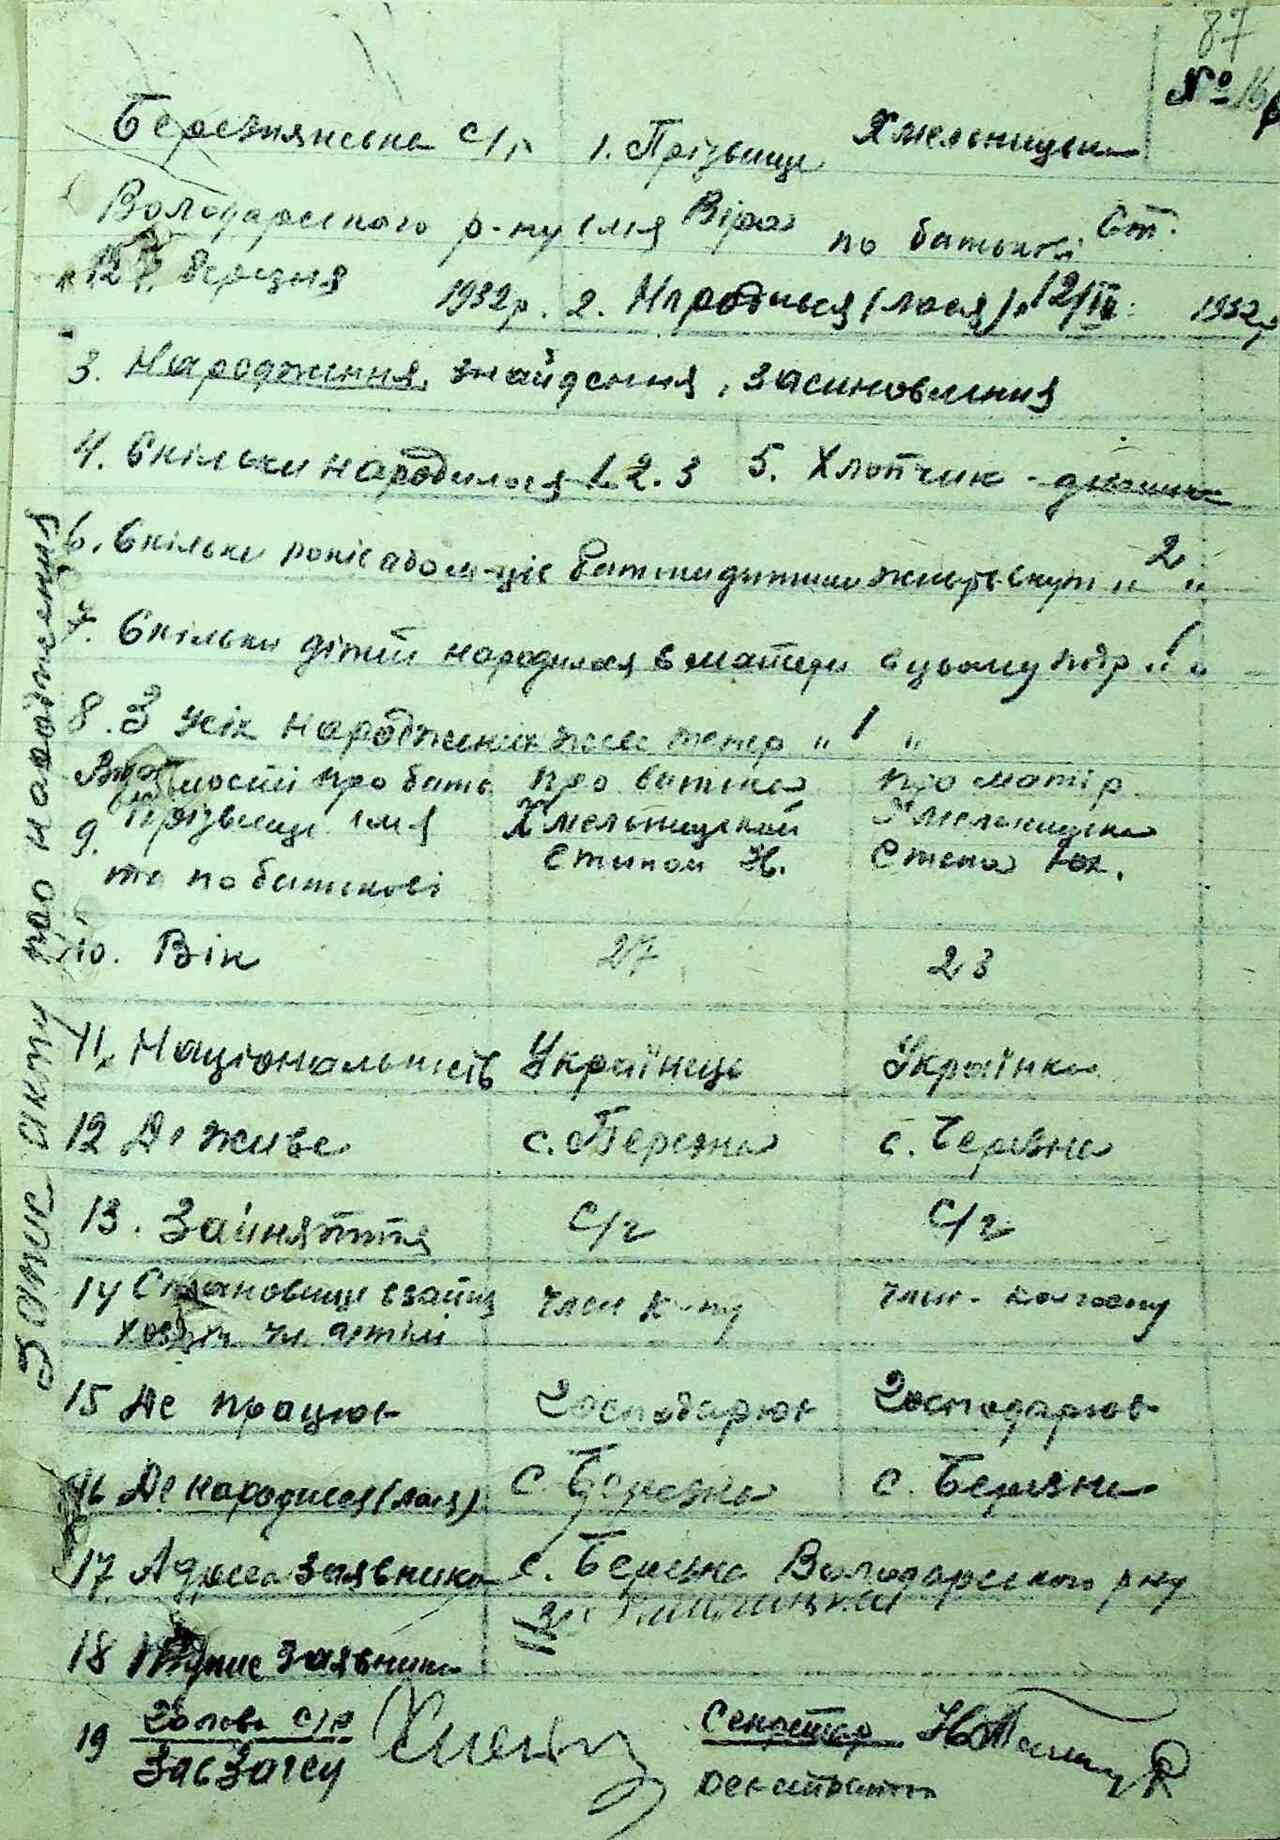 87
№ 16
Березнянська с/р 1. Прізвище Хмельницька
Володарського р-ну імя Віра по батькові Ст.
березня 1932р. 2. Народився (лася) 12/IV 1932р
3. Народження, знайдення, засиновлення
4. Скільки народилося 1. 2. 3 5. Хлопчик - дівчинка
6. Скільки років або м-ців батьки дитини живуть вкупі „ 2 „
7. Скільки дітей народилося в матері в цьому „ 1 „
8. З усіх народжених живе тепер „ 1 „
Відомості про бать про батька про матір
9. Прізвище імя Хмельницький Хмельницька
та по батькові Степан Н. Степа Юх.
10. Вік 27 23
11. Національність Українець Українка
12 Де живе с. Березна с. Березна
13. Заняття С/г С/г
14 Становище в занят член к-пу член-колгоспу
хазяїн чл. артілі
15 Де працює Господарює Господарює
16 Де народився (лася) с. Березна с. Березна
17. Адреса заявника с. Березна Володарського р-ну
18 Підпис заявника
19 Голова с/р Секретар
Зав Загсу
Запис акту про народження